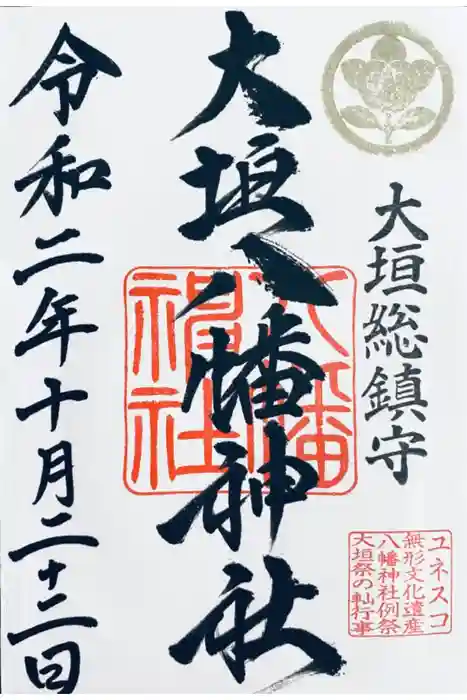 大垣総鎮守
大垣八幡神社
令和二年十月二十二日
八幡
社
ユネスコ
無形文化遺産
八幡神社例祭
大垣祭の軕行事